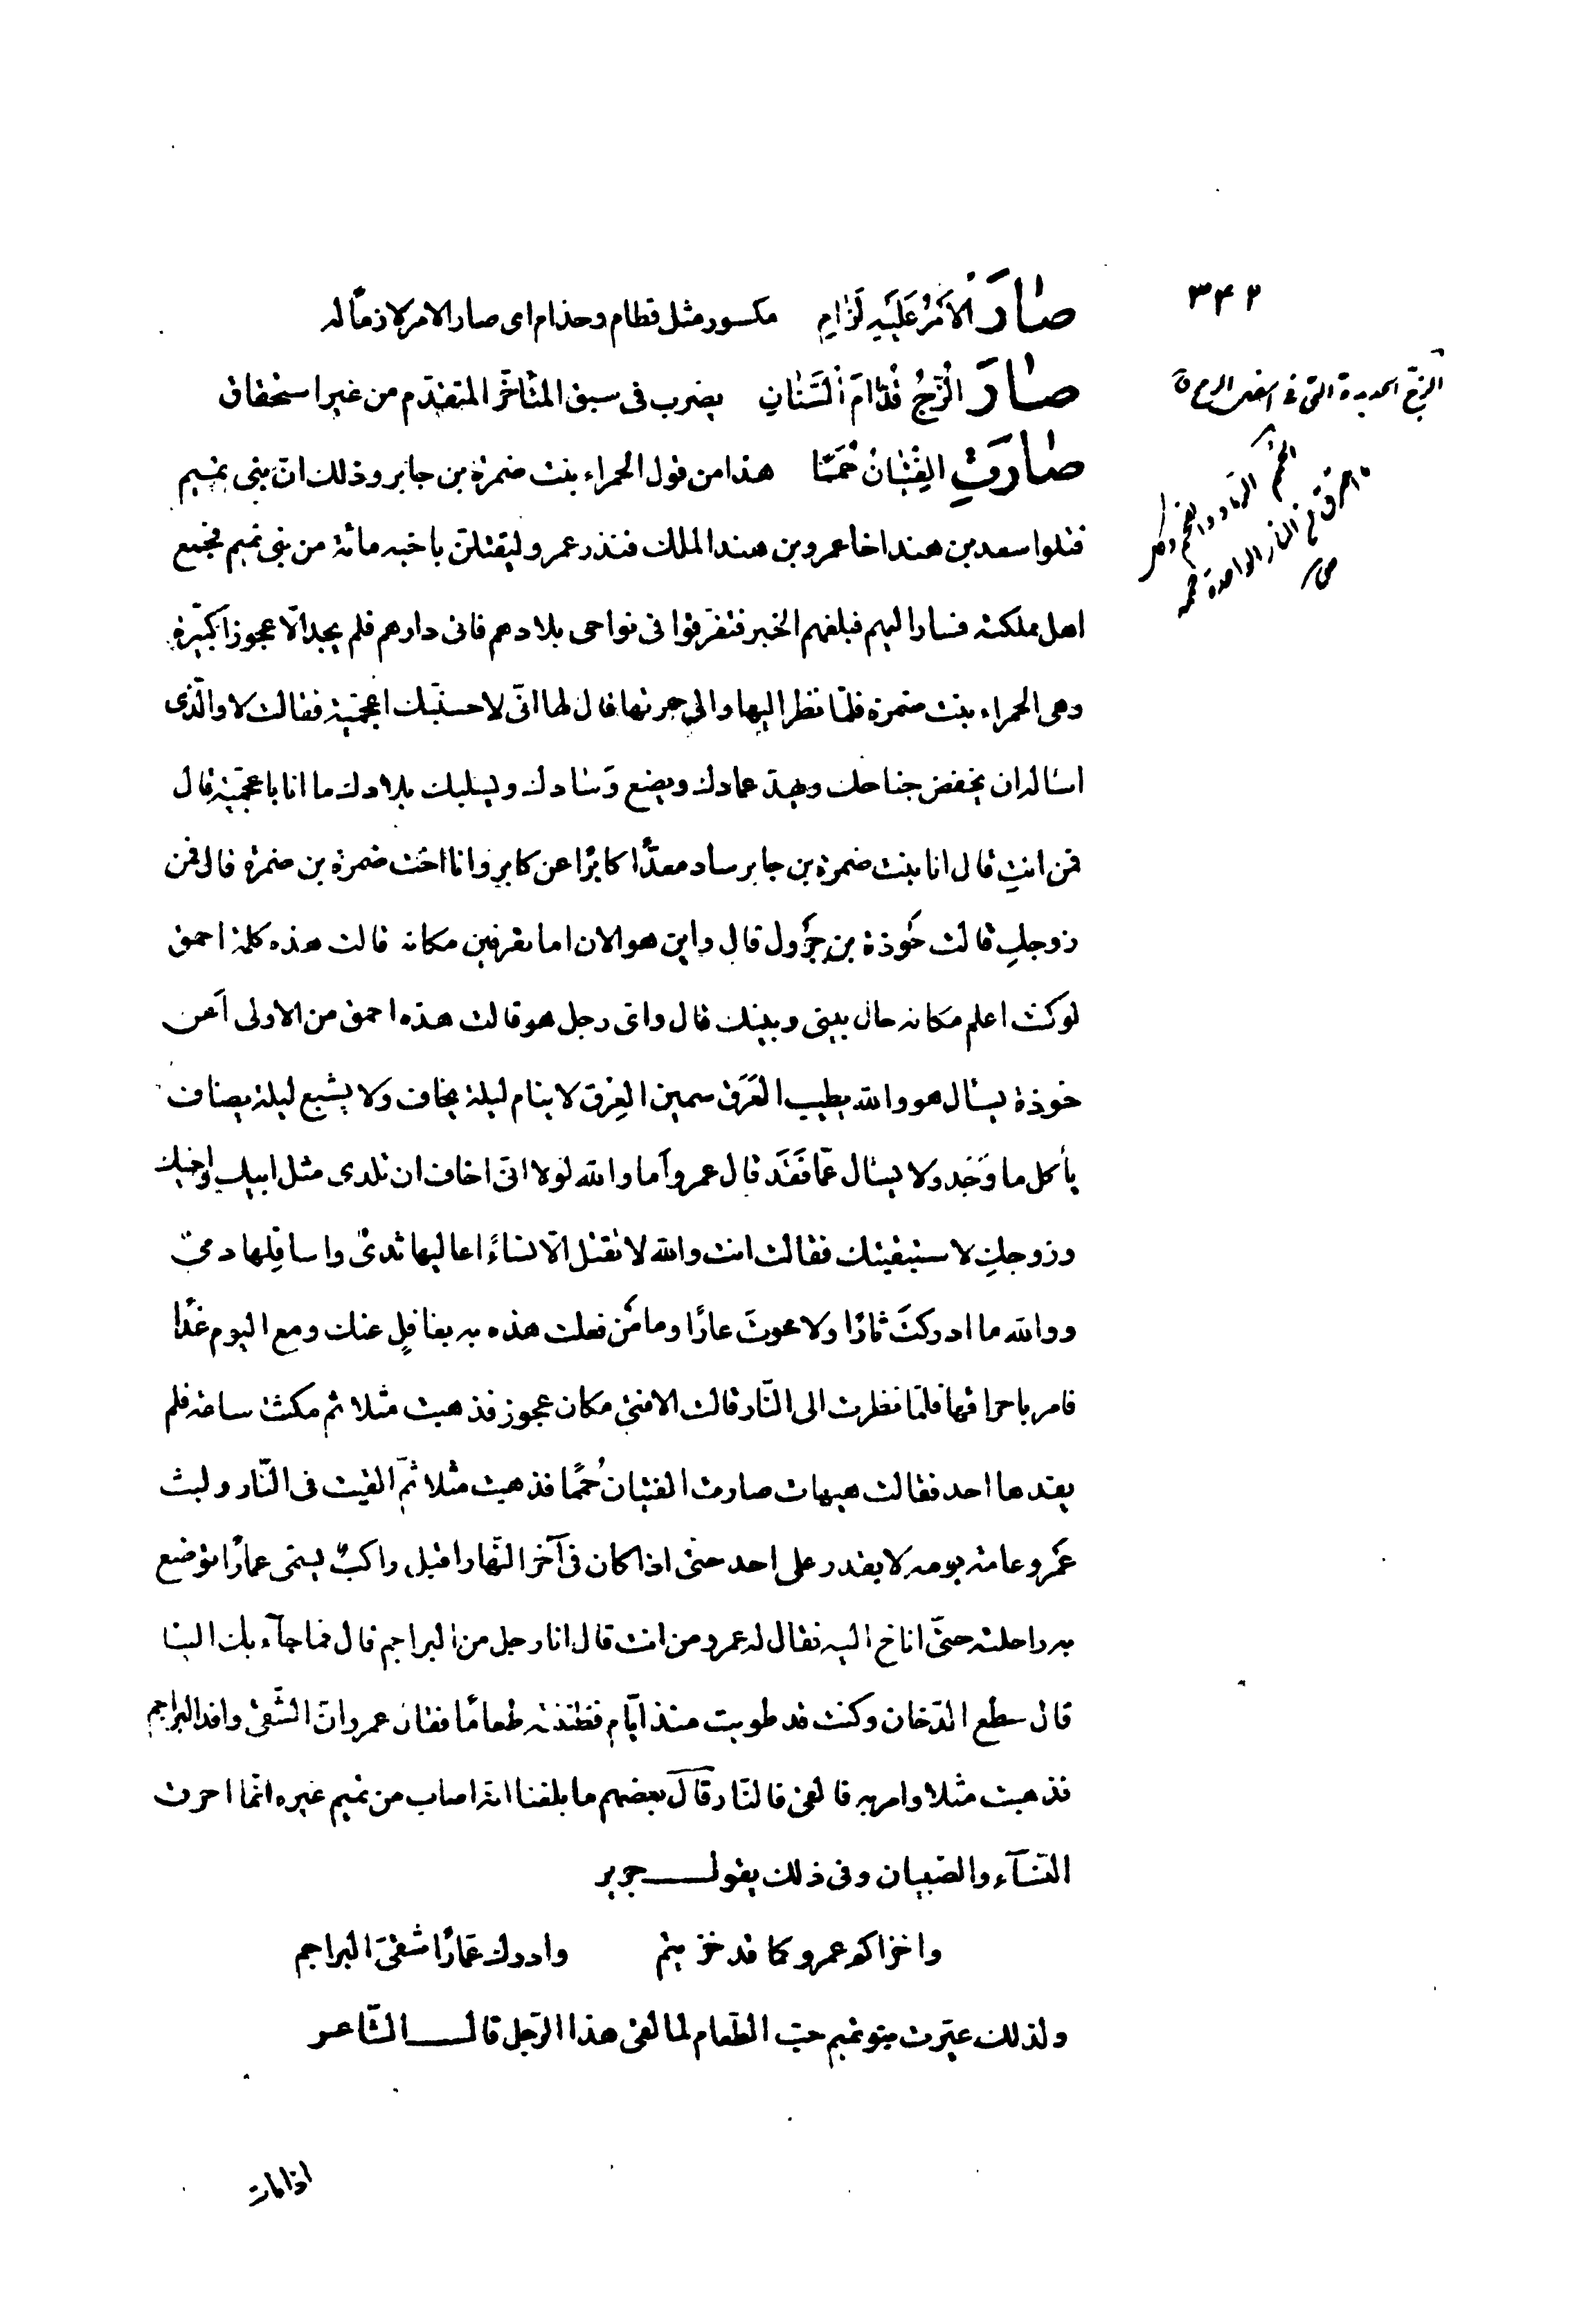 ٣٤٢
صَارَ الأَمْرُ عَلَيْهِ لَزَامِ مكسور مثل قطام وحذام اى صار الامر لازمًا له
صَارَ الزُّجُّ قُدَّامَ السِّنَانِ يضرب فى سبق المتأخّر المتقدّم من غير استحقاق
الزجّ الحديدة التى فى اسفل الرمح
صَارَتِ الفِتْيَانُ حُمَمًا هذا من قول الحمراء بنت ضمرة بن جابر وذلك انّ بنى تميم
الحُمم الرماد والفحم وكل
ما احرق من النار الواحدة حممه
قتلوا سعد بن هند اخا عمرو بن هند الملك فنذر عمرو ليقتلنّ باخيه مائة من بنى تميم فجمع
اهل مملكته فسار اليهم فبلغهم الخبر فتفرّقوا فى نواحى بلادهم فاتى دارهم فلم يجد الّا عجوزًا كبيرة
وهى الحمراء بنت ضمرة فلمّا نظر اليها والى حمرتها قال لها انّى لاحسبك اعجميّة فقالت لا والّذى
اسأله ان يخفض جناحك ويهدّ عمادك ويضع وسادك ويسلبك بلادك ما انا باعجميّة قال
فمن انتِ قال انا بنت ضمرة بن جابر ساد معدًّا كابرًا عن كابر وانا اخت ضمرة بن ضمرة قال فمن
زوجكِ قالت هَوذة بن جَرْول قال واين هو الان اما تعرفين مكانه قالت هذه كلمة احمق
لو كنت اعلم مكانه حال بينى وبينك قال واىّ رجل هو قالت هذه احمق من الاولى أعن
هوذة يسأل هو والله طيب العَرَق سمين العِرْق لا ينام ليلة يخاف ولا يشبع ليلة يضاف
يأكل ما وَجَد ولا يسأل عمّا فَقَد قال عمرو أما والله لولا انّى اخاف ان تلدى مثل ابيك واخيك
وزوجكِ لاستبقيتك فقالت انت والله لا تقتل الّا نساءً اعاليها ثدىّ واسافلها دمىّ
ووالله ما ادركتَ ثارًا ولا محوتَ عارًا وما مَن فعلت هذه به بغافلٍ عنك ومع اليوم غدًا
فامر باحراقها فلمّا نظرت الى النّار قالت الا فتى مكان عجوز فذهبت مثلا ثم مكثت ساعة فلم
يفدها احد فقالت هيهات صارت الفتيان حُممًا فذهبت مثلا ثمّ القيت فى النّار ولبث
عَمرو عامة يومه لا يقدر على احد حتى اذا كان فى آخر النّهار اقبل راكبٌ يسمّى عمارًا توضع
به راحلته حتّى اناخ اليه فقال له عمرو من انت قال انا رجل من البراجم قال فما جآء بك الينا
قال سطع الدّخان وكنت قد طويت منذ ايّام فظننته طعامًا فقال عمرو انّ الشّقىّ وافد البراجم
فذهبت مثلا وامر به فالقى فالنّار قال بعضهم ما بلغنا انّه اصاب من تميم غيره انّما احرق
النّسآء والصّبيان وفى ذلك يقول جرير
واخزاكم عمرو كما قد خزيتم وادرك عَمارًا شقىَّ البراجم
ولذلك عيّرت بنو تميم حبّ الطّعام لما لقى هذا الرّجل قال الشّاعر
اذا مات